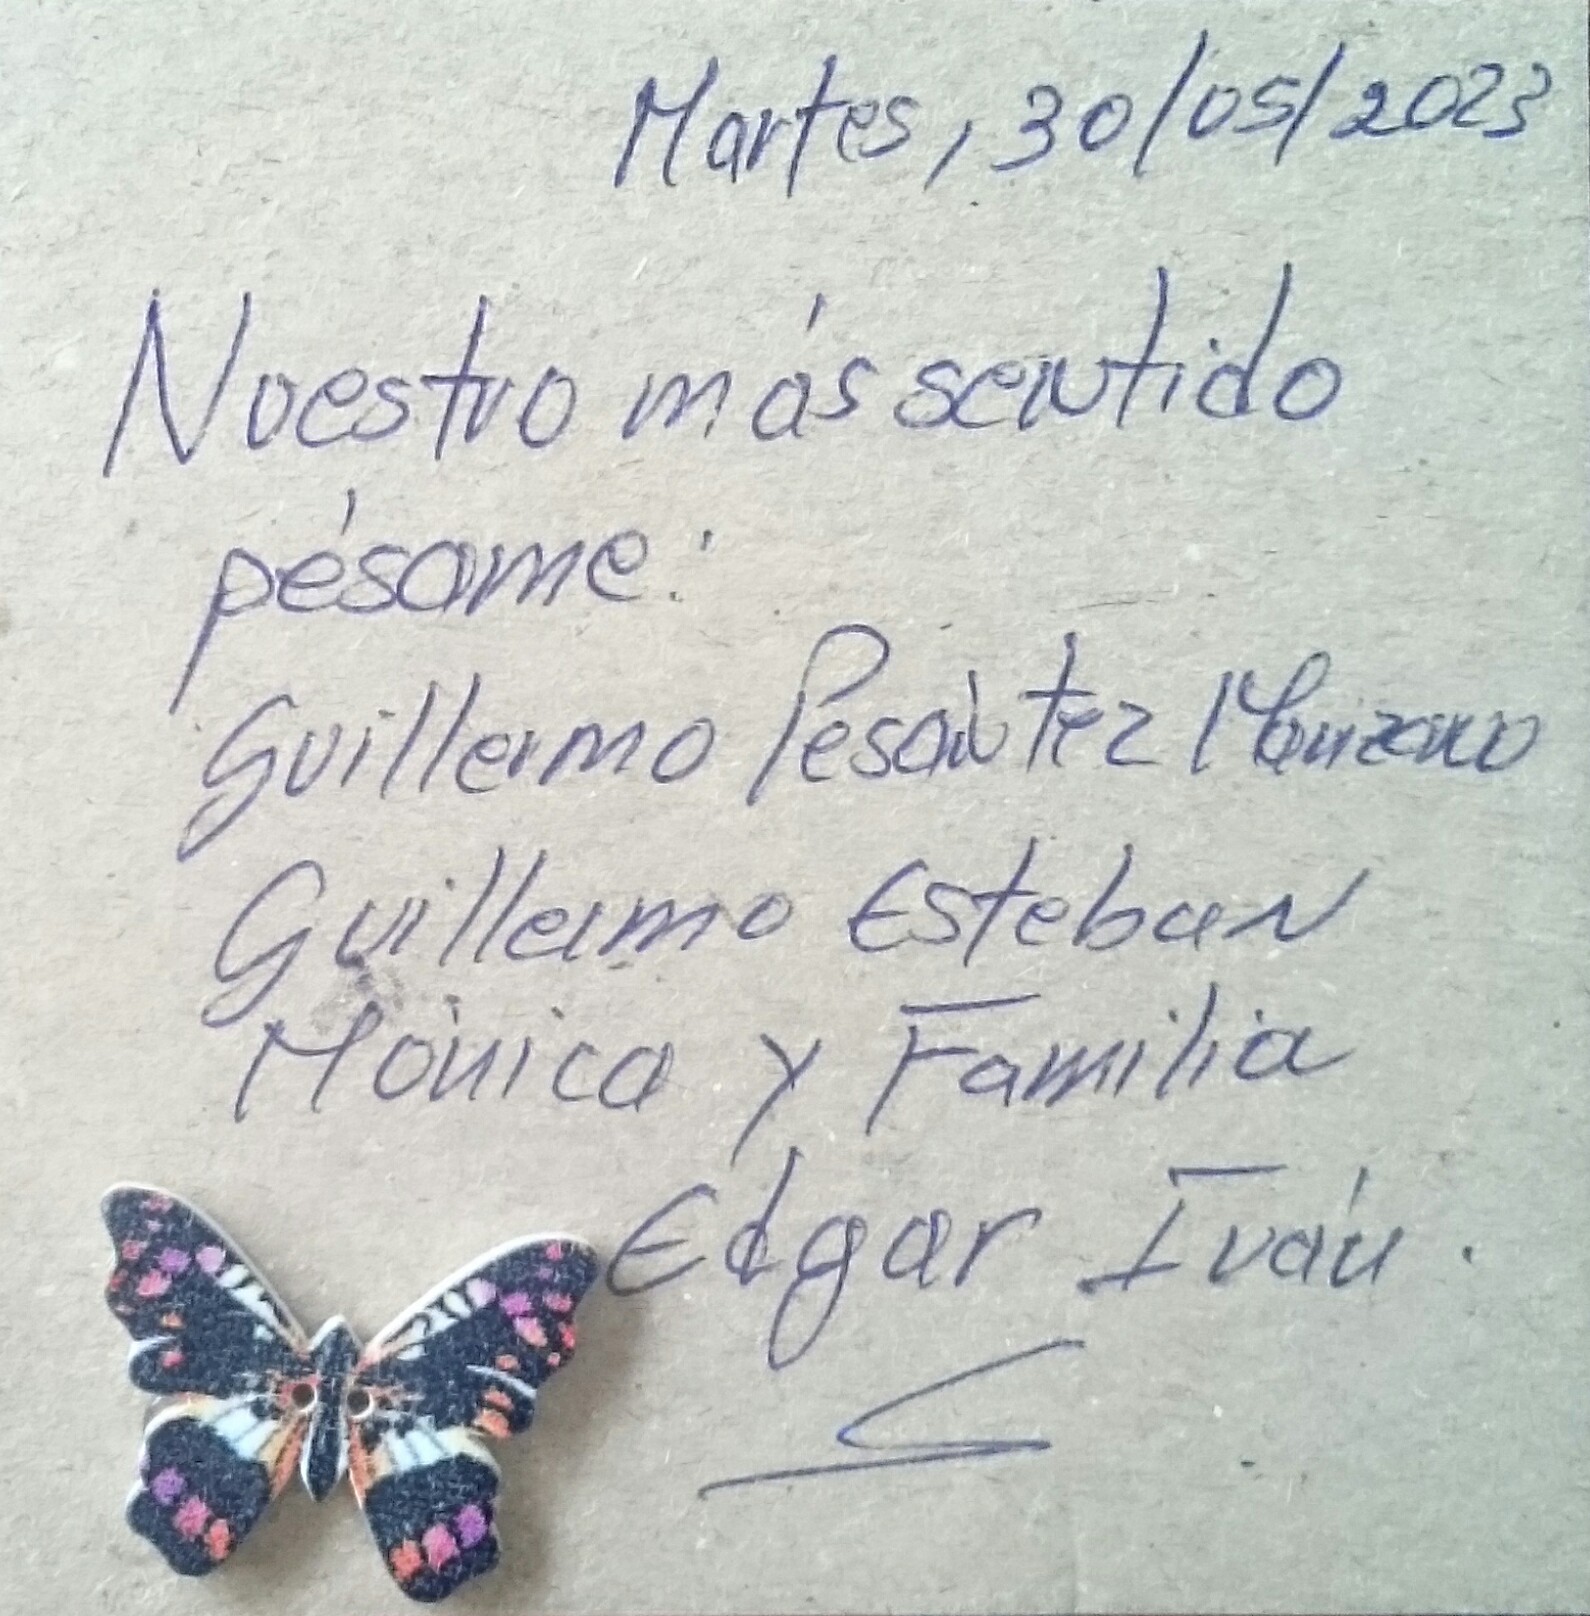 Martes, 30/05/2023
Nuestro más sentido
pésame:
Guillermo Pesántez Manzano
Guillermo Esteban
Mónica y Familia
Edgar Iván.